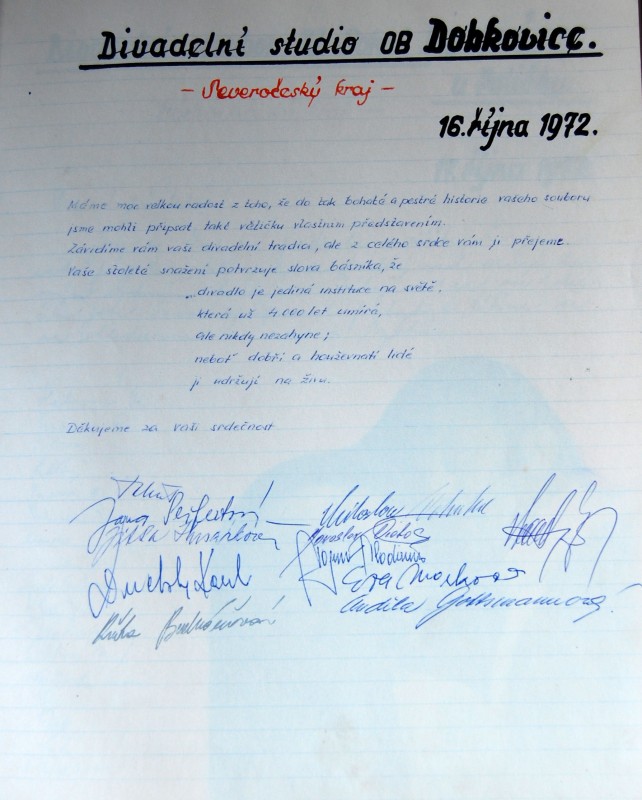 Divadelní studio OB Dobkovice.
- Severočeský kraj -
16. října 1972.
Máme moc velkou radost z toho, že do tak bohaté a pestré historie vašeho souboru
jsme mohli připsat také větičku vlastním představením.
Závidíme vám vaši divadelní tradici, ale z celého srdce vám ji přejeme.
Vaše stoletá snažení potvrzuje slova básníka, že
„divadlo je jediná instituce na světě,
která už 4 000 let umírá,
ale nikdy nezahyne;
neboť dobří a houževnatí lidé
ji udržují na živu.
Děkujeme za vaši srdečnost
Jana
Miloslav
Jaroslav
Karel
Eva